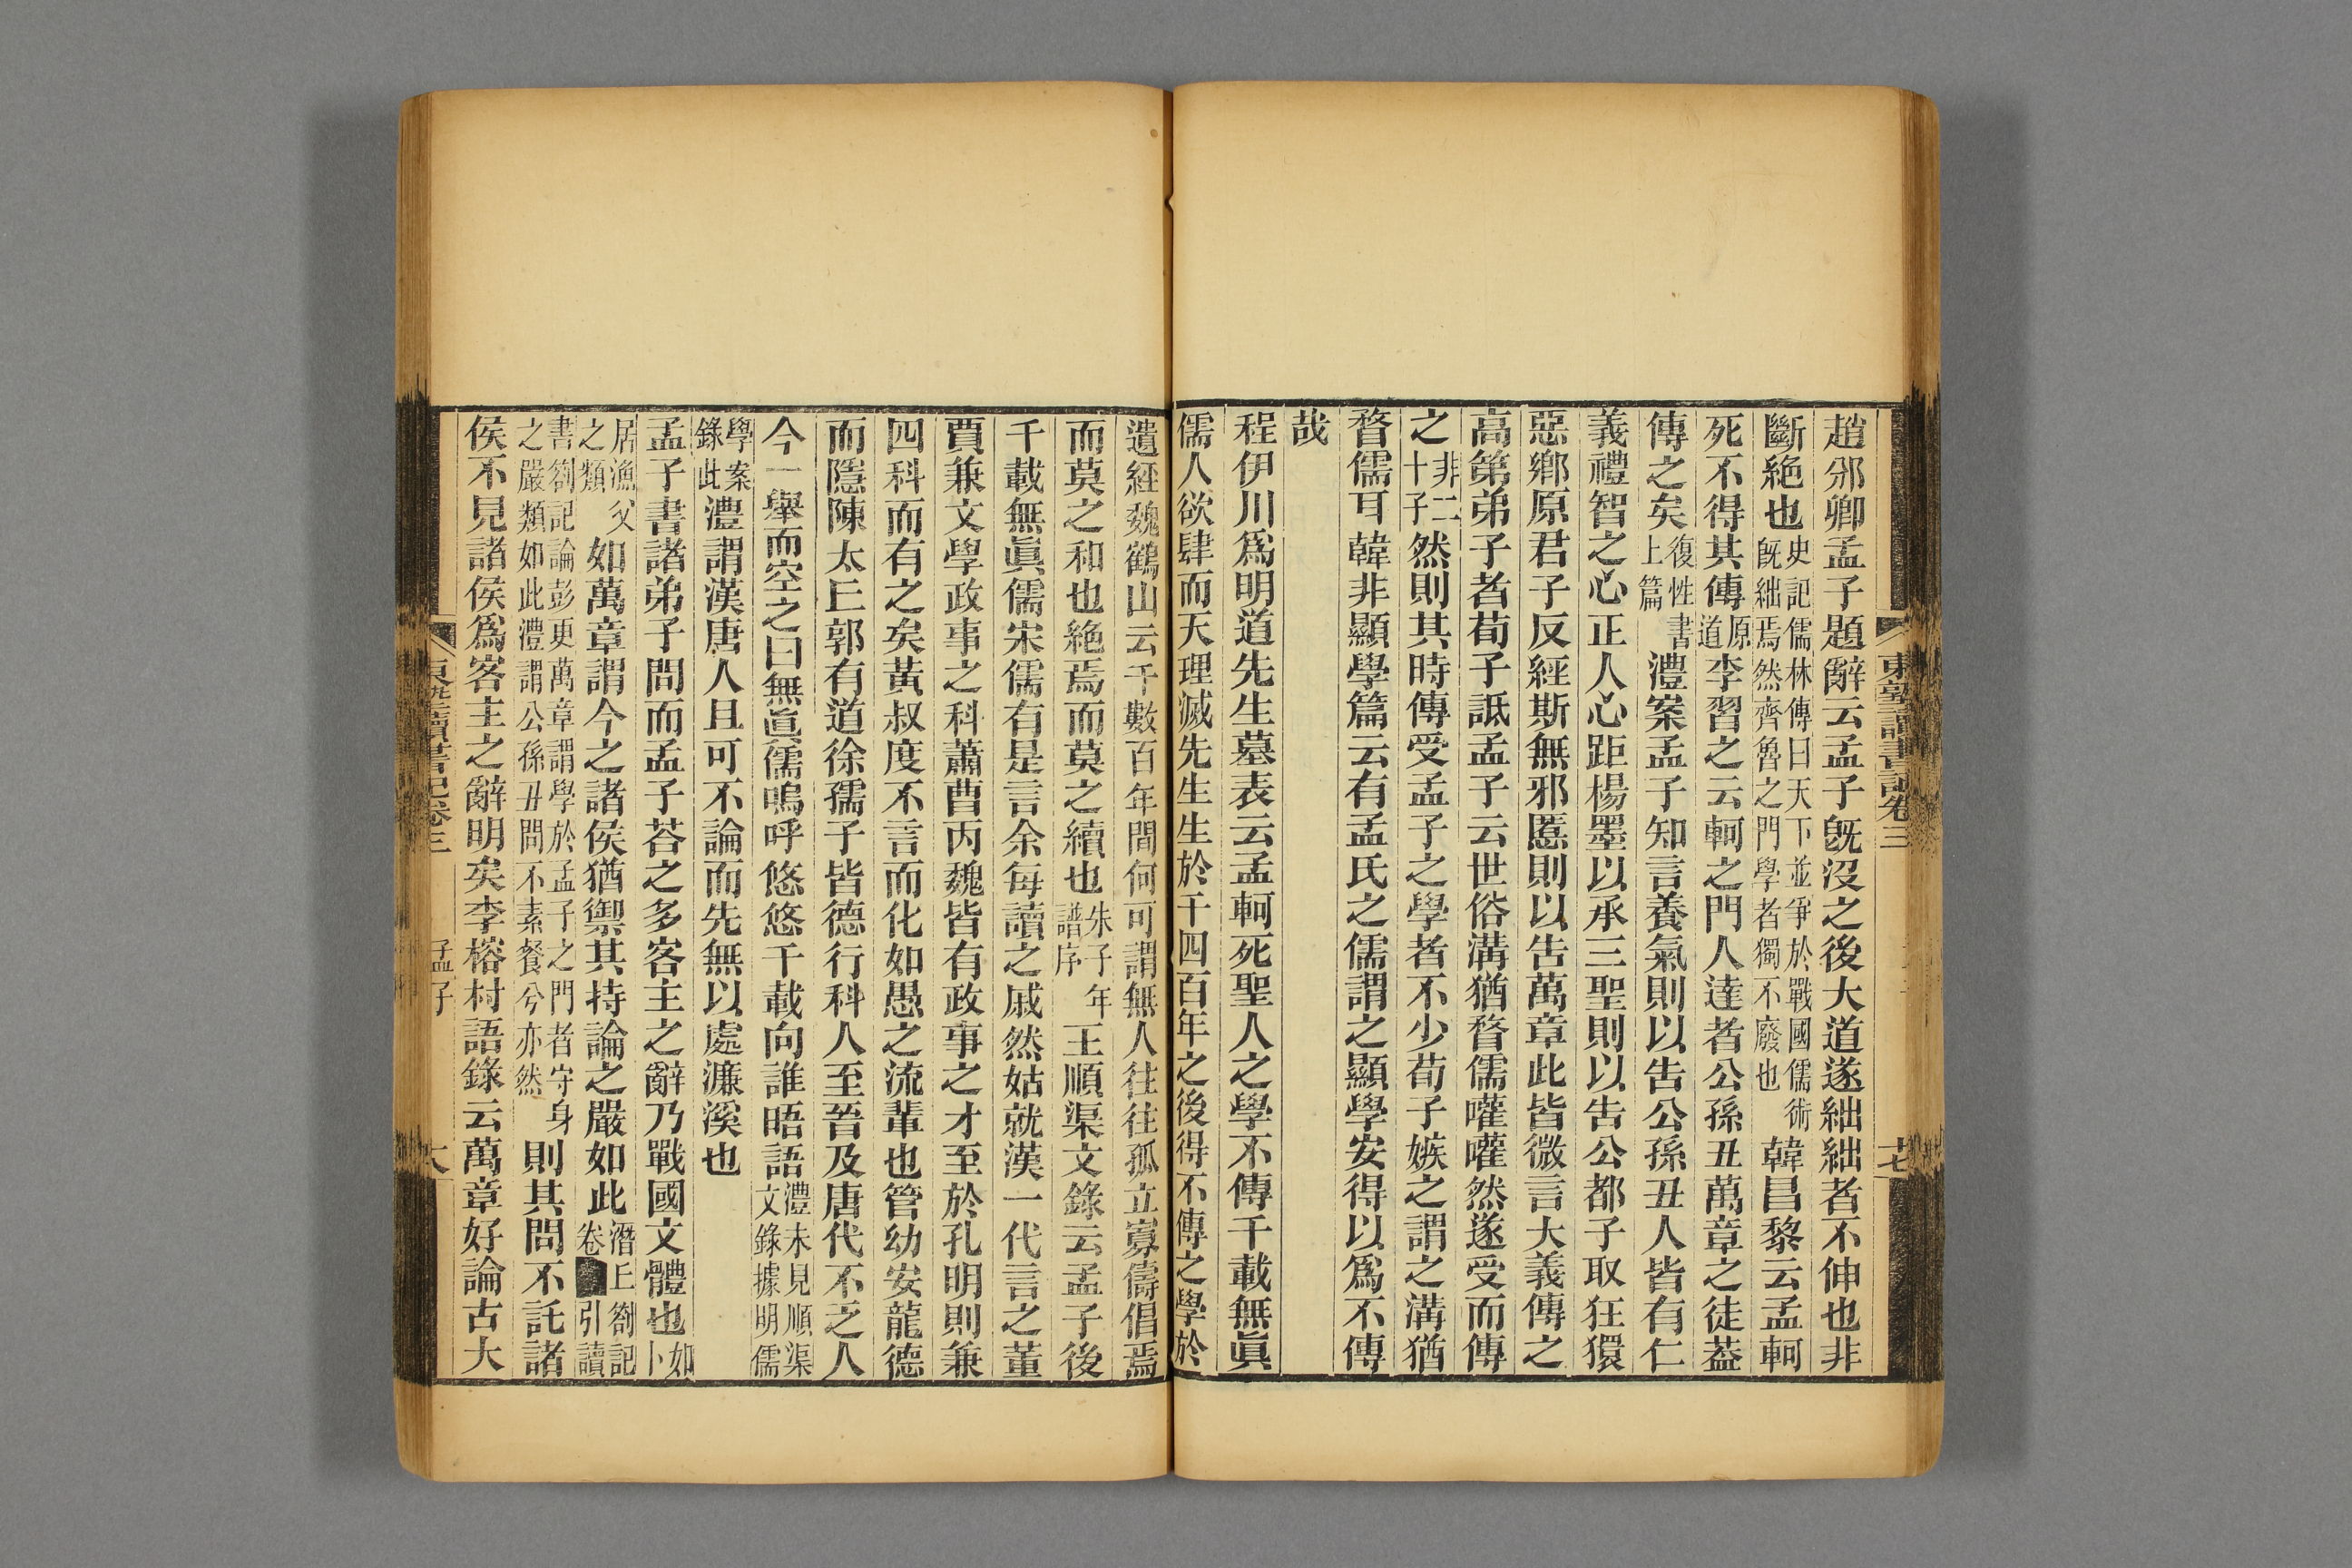 東塾讀書記卷三
十七
趙邠卿孟子題辭云孟子旣沒之後大道遂絀絀者不伸也非
斷絕也史記儒林傳曰天下並爭於戰國儒術旣絀焉然齊魯之門學者獨不廢也韓昌黎云孟軻
死不得其傳原道李習之云軻之門人達者公孫丑萬章之徒葢
傳之矣復性書上篇澧案孟子知言養氣則以吿公孫丑人皆有仁
義禮智之心正人心距楊墨以承三聖則以吿公都子取狂獧
惡鄉原君子反經斯無邪慝則以吿萬章此皆微言大義傳之
高第弟子者荀子詆孟子云世俗溝猶瞀儒嚾嚾然遂受而傳
之非十二子然則其時傳受孟子之學者不少荀子嫉之謂之溝猶
瞀儒耳韓非顯學篇云有孟氏之儒謂之顯學安得以爲不傳
哉
程伊川爲明道先生墓表云孟軻死聖人之學不傳千載無眞
儒人欲肆而天理滅先生生於千四百年之後得不傳之學於
遺經魏鶴山云千數百年間何可謂無人往往孤立寡儔倡焉
而莫之和也絕焉而莫之續也朱子年譜序王順渠文錄云孟子後
千載無眞儒宋儒有是言余每讀之戚然姑就漢一代言之董
賈兼文學政事之科蕭曹丙魏皆有政事之才至於孔明則兼
四科而有之矣黃叔度不言而化如愚之流輩也管幼安龍德
而隱陳太丘郭有道徐孺子皆德行科人至晉及唐代不乏人
今一舉而空之曰無眞儒嗚呼悠悠千載向誰晤語澧未見順渠文錄據明儒
學案錄此澧謂漢唐人且可不論而先無以處濂溪也
孟子書諸弟子問而孟子荅之多客主之辭乃戰國文體也如卜
居漁父之類如萬章謂今之諸侯猶禦其持論之嚴如此潛丘劄記卷引讀
書劄記論彭更萬章謂學於孟子之門者守身之嚴類如此澧謂公孫丑問不素餐兮亦然則其問不託諸
侯不見諸侯爲客主之辭明矣李榕村語錄云萬章好論古大
東塾讀書記卷三
孟子